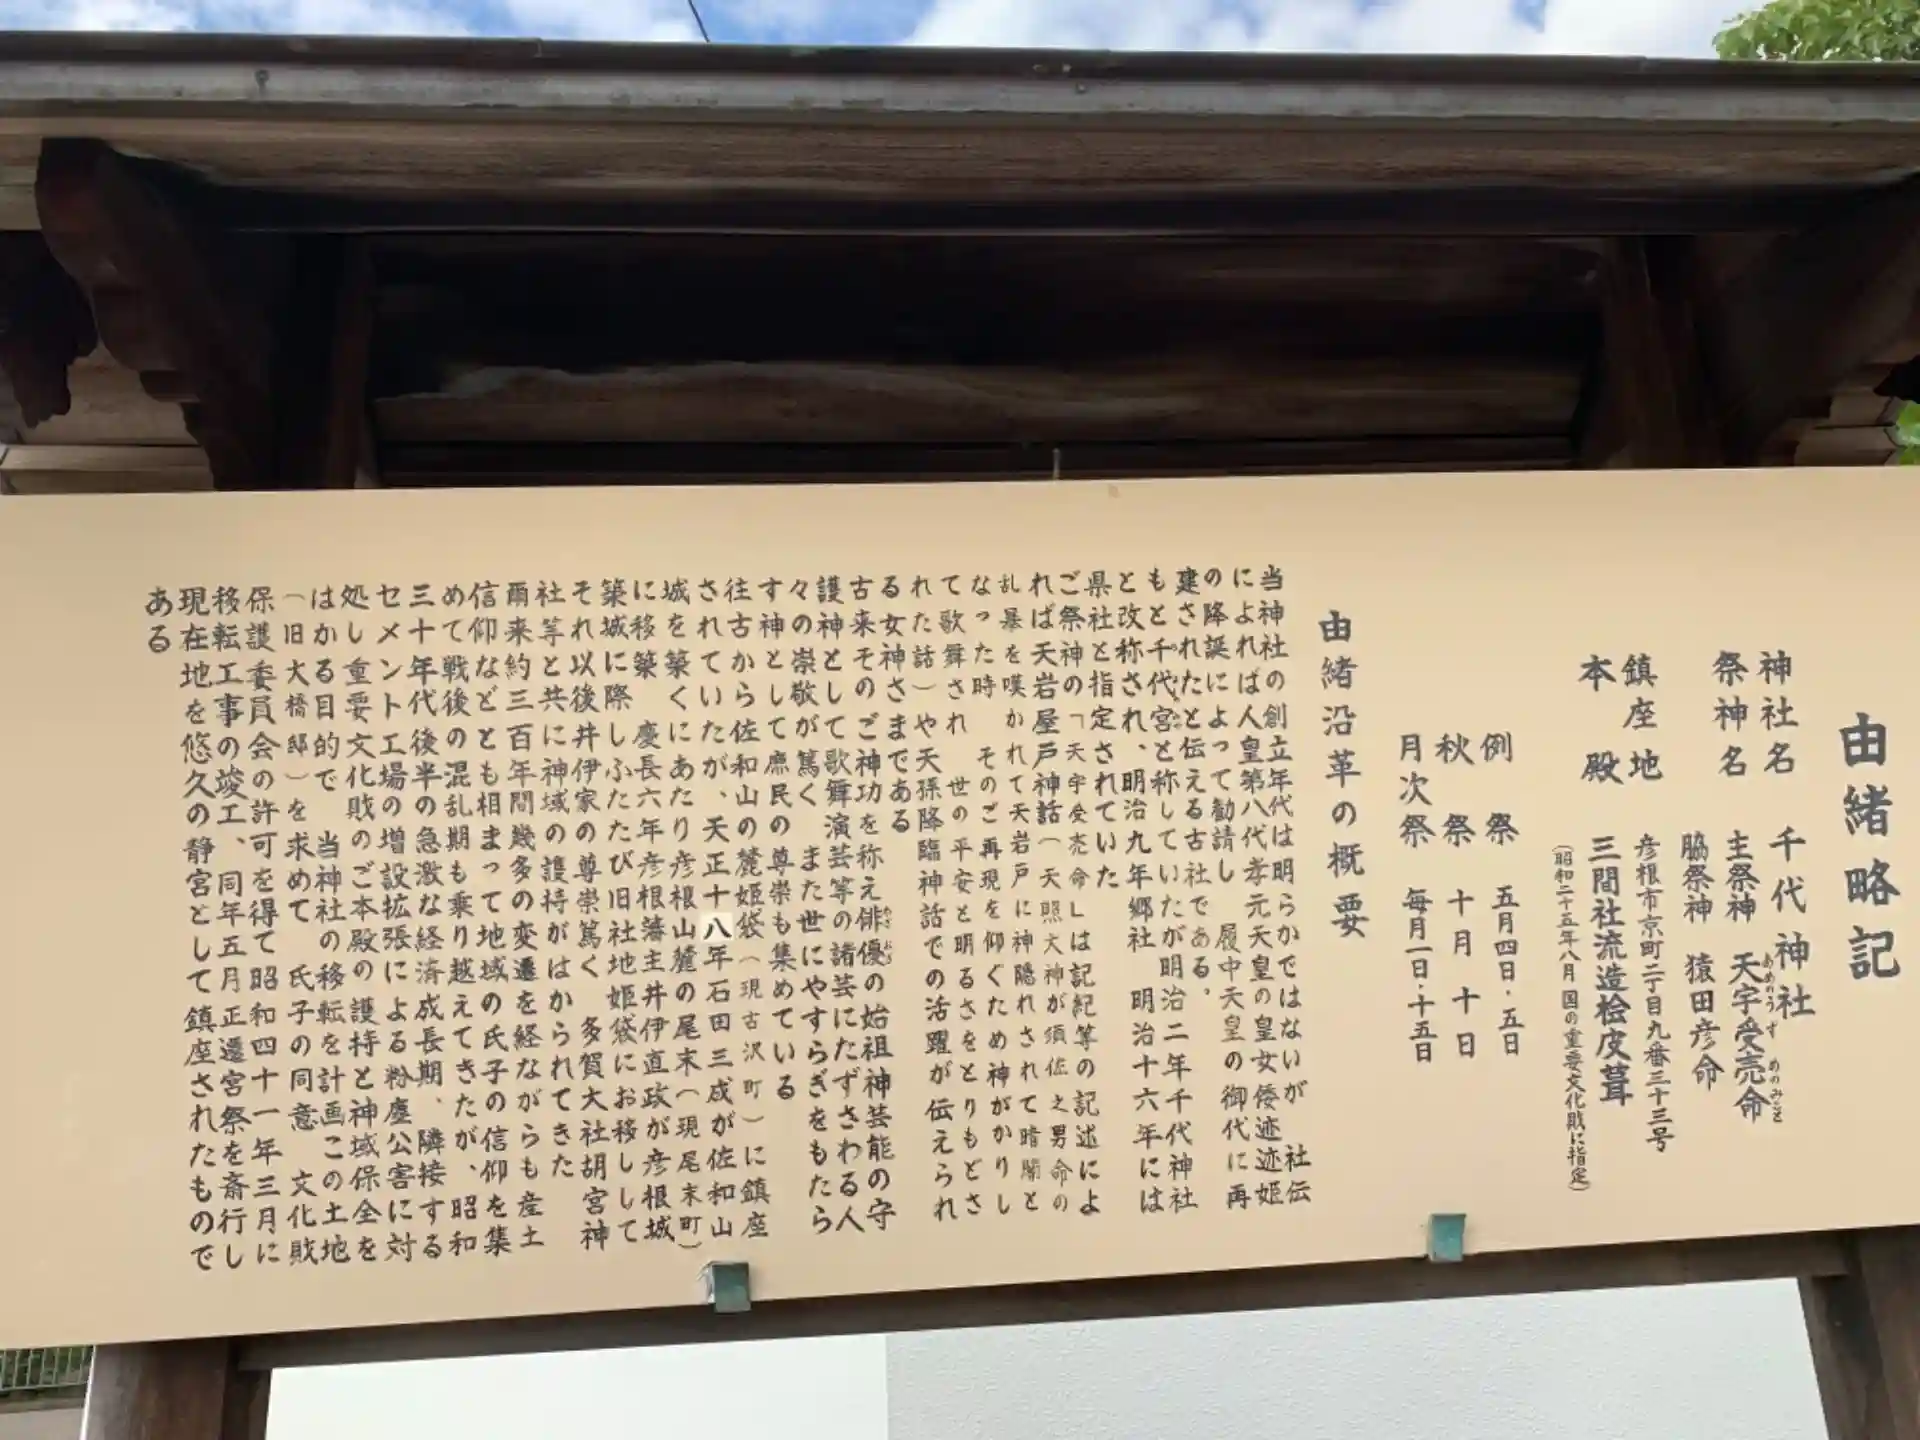 由緒略記
神社名　千代神社
祭神名　主祭神　天宇受売命
あめのうず　めのみこと
脇祭神　猿田彦命
鎮座地　彦根市京町二丁目九番三十三号
本殿　三間社流造桧皮葺
(昭和二十五年八月 国の重要文化財に指定)
例祭　五月四日・五日
秋祭　十月十日
月次祭　毎月一日・十五日
由緒沿革の概要
当神社の創立年代は明らかではないが　社伝
によれば人皇第八代孝元天皇の皇女倭迹迹姫
の降誕によって勧請し　履中天皇の御代に再
建されたと伝える古社である。
もと千代宮と称していたが明治二年千代神社
と改称され、明治九年郷社　明治十六年には
県社と指定されていた
ご祭神の「天宇受売命」は記紀等の記述によ
れば天岩屋戸神話(天照大神が須佐之男命の
乱暴を嘆かれて天岩戸に神隠れされて暗闇と
なった時　そのご再現を仰ぐため神がかりし
て歌舞され　世の平安と明るさをとりもどさ
れた話)や天孫降臨神話での活躍が伝えられ
る女神さまである
古来そのご神功を称え俳優の始祖神芸能の守
護神として歌舞演芸等の諸芸にたずさわる人
々の崇敬が篤く　また世にやすらぎをもたら
す神として庶民の尊崇も集めている
往古から佐和山の麓姫袋(現古沢町)に鎮座
されていたが、天正十八年石田三成が佐和山
城を築くにあたり彦根山麓の尾末(現尾末町)
に移築　慶長六年彦根藩主井伊直政が彦根城
築城に際しふたたび旧社地姫袋にお移しして
それ以後井伊家の尊崇篤く　多賀大社胡宮神
社等と共に神域の護持がはかられてきた
爾来約三百年間幾多の変遷を経ながらも産土
信仰などとも相まって地域の氏子の信仰を集
めて戦後の混乱期も乗り越えてきたが、昭和
三十年代後半の急激な経済成長期、隣接する
セメント工場の増設拡張による粉塵公害に対
処し重要文化財のご本殿の護持と神域保全を
はかる目的で　当神社の移転を計画この土地
(旧大橋邸)を求めて　氏子の同意　文化財
保護委員会の許可を得て昭和四十一年三月に
移転工事の竣工、同年五月正遷宮祭を斎行し
現在地を悠久の静宮として鎮座されたもので
ある